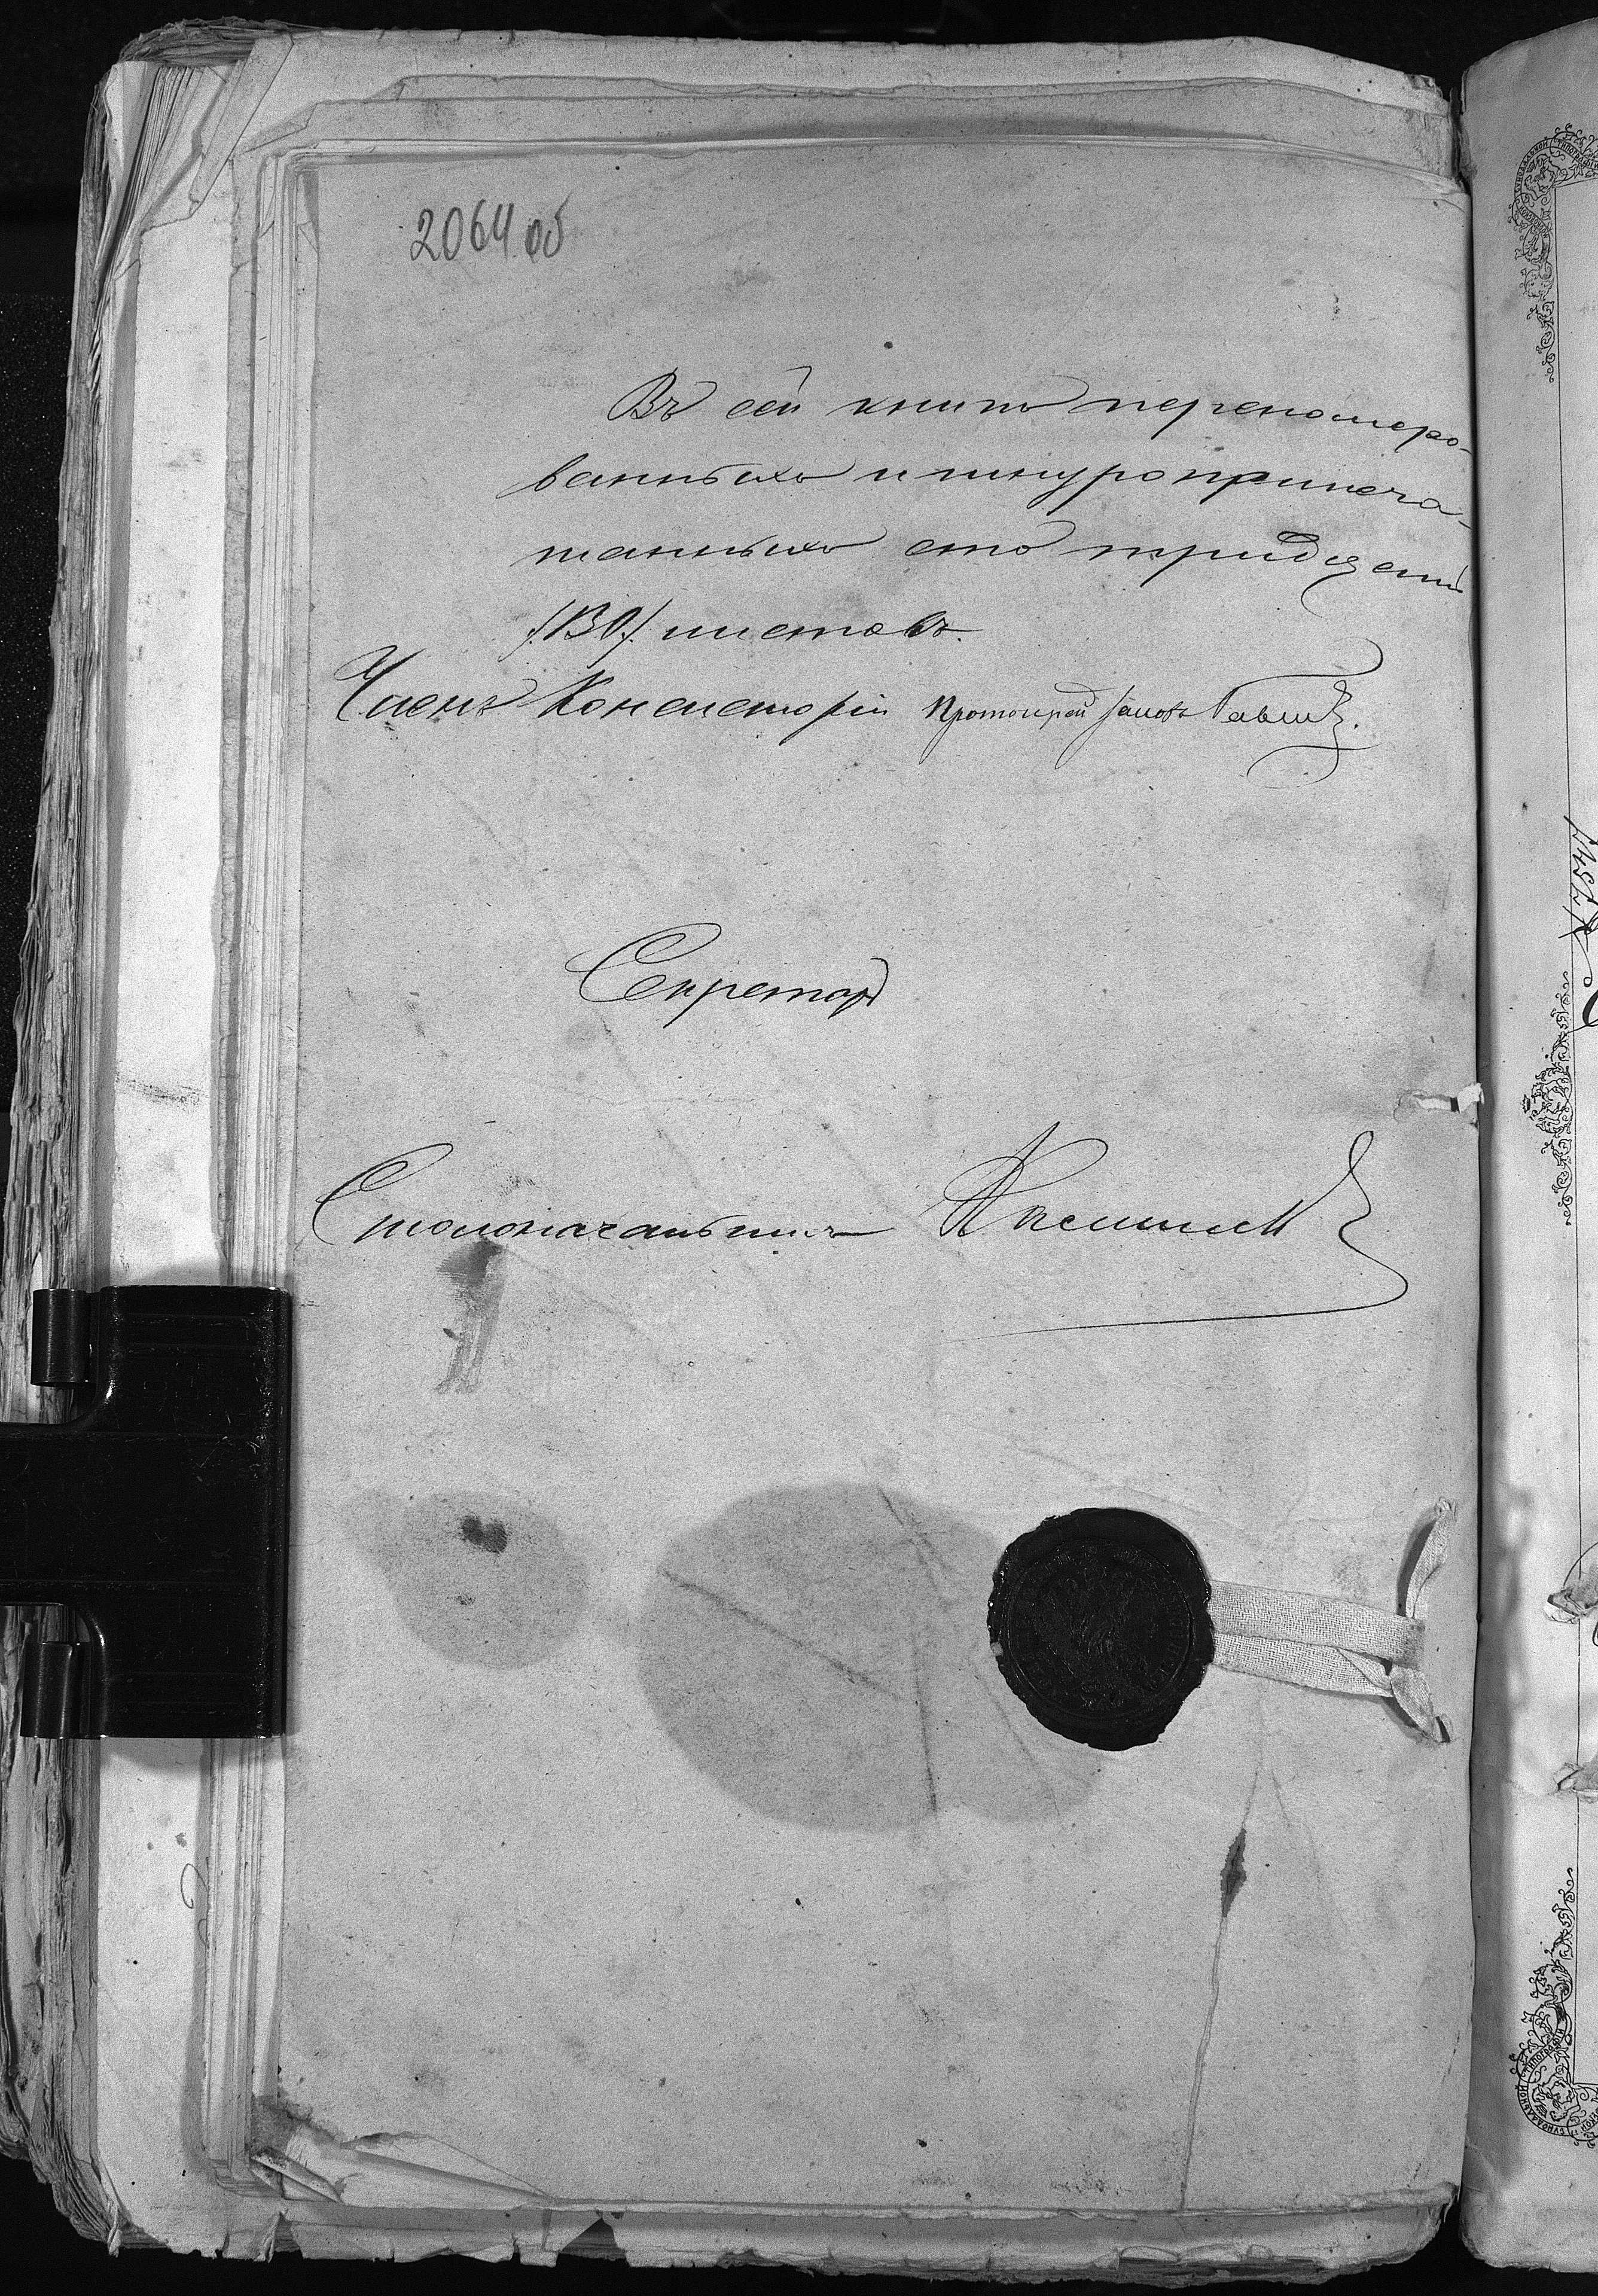 2064 об
Въ сей книгѣ перенумеро-
ванныхъ и шнуроприпеча-
танныхъ сто тридцать
/130/ листовъ.
Членъ Консисторіи Протоіерей
Секретарь
Столоначальникъ